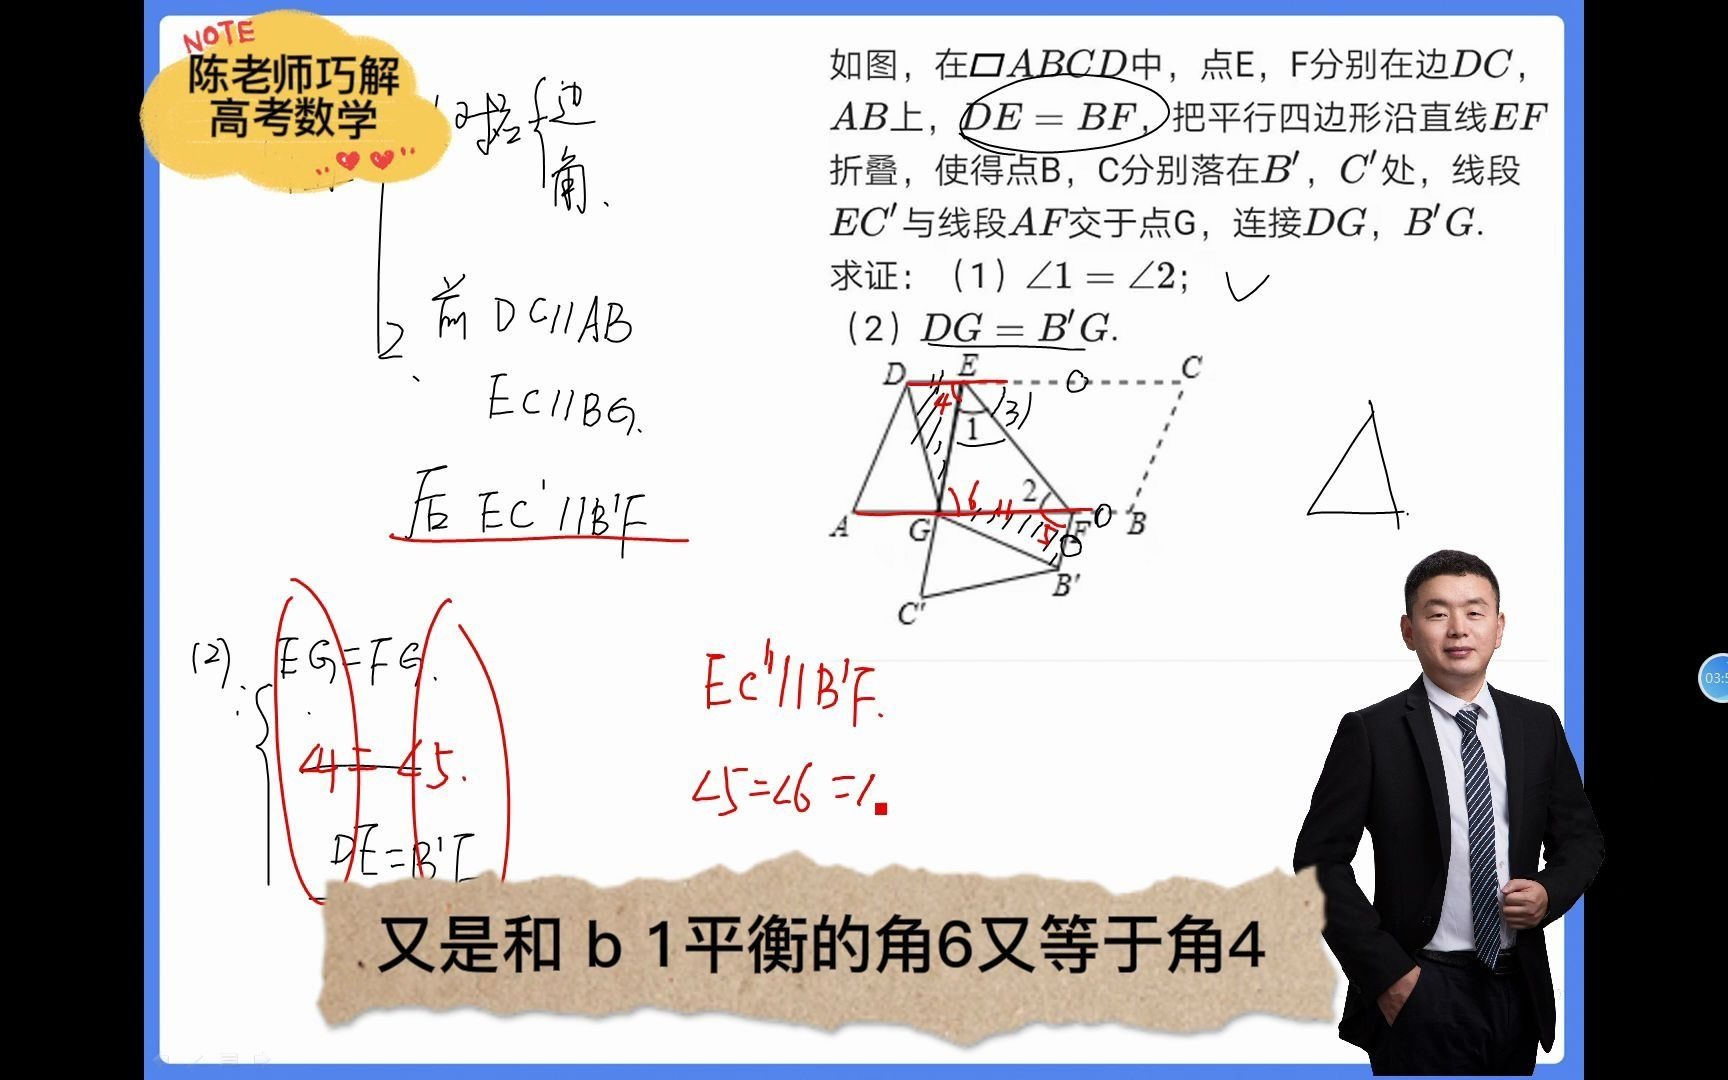 NOTE
陈老师巧解
高考数学
对应 边
角.
如图，在▱ABCD中，点E，F分别在边DC，
AB上，DE = BF，把平行四边形沿直线EF
折叠，使得点B，C分别落在B′，C′处，线段
EC′与线段AF交于点G，连接DG，B′G.
求证：（1）∠1 = ∠2；
（2）DG = B′G.
2
前 DC//AB
EC//BG.
后 EC'//B'F
D E C
4 1 3
6 2 5
A G F B
B'
C'
(2)
EG=FG.
∠4=∠5.
DE=B'F
EC'//B'F.
∠5=∠6=∠
03:5
又是和 b 1平衡的角6又等于角4